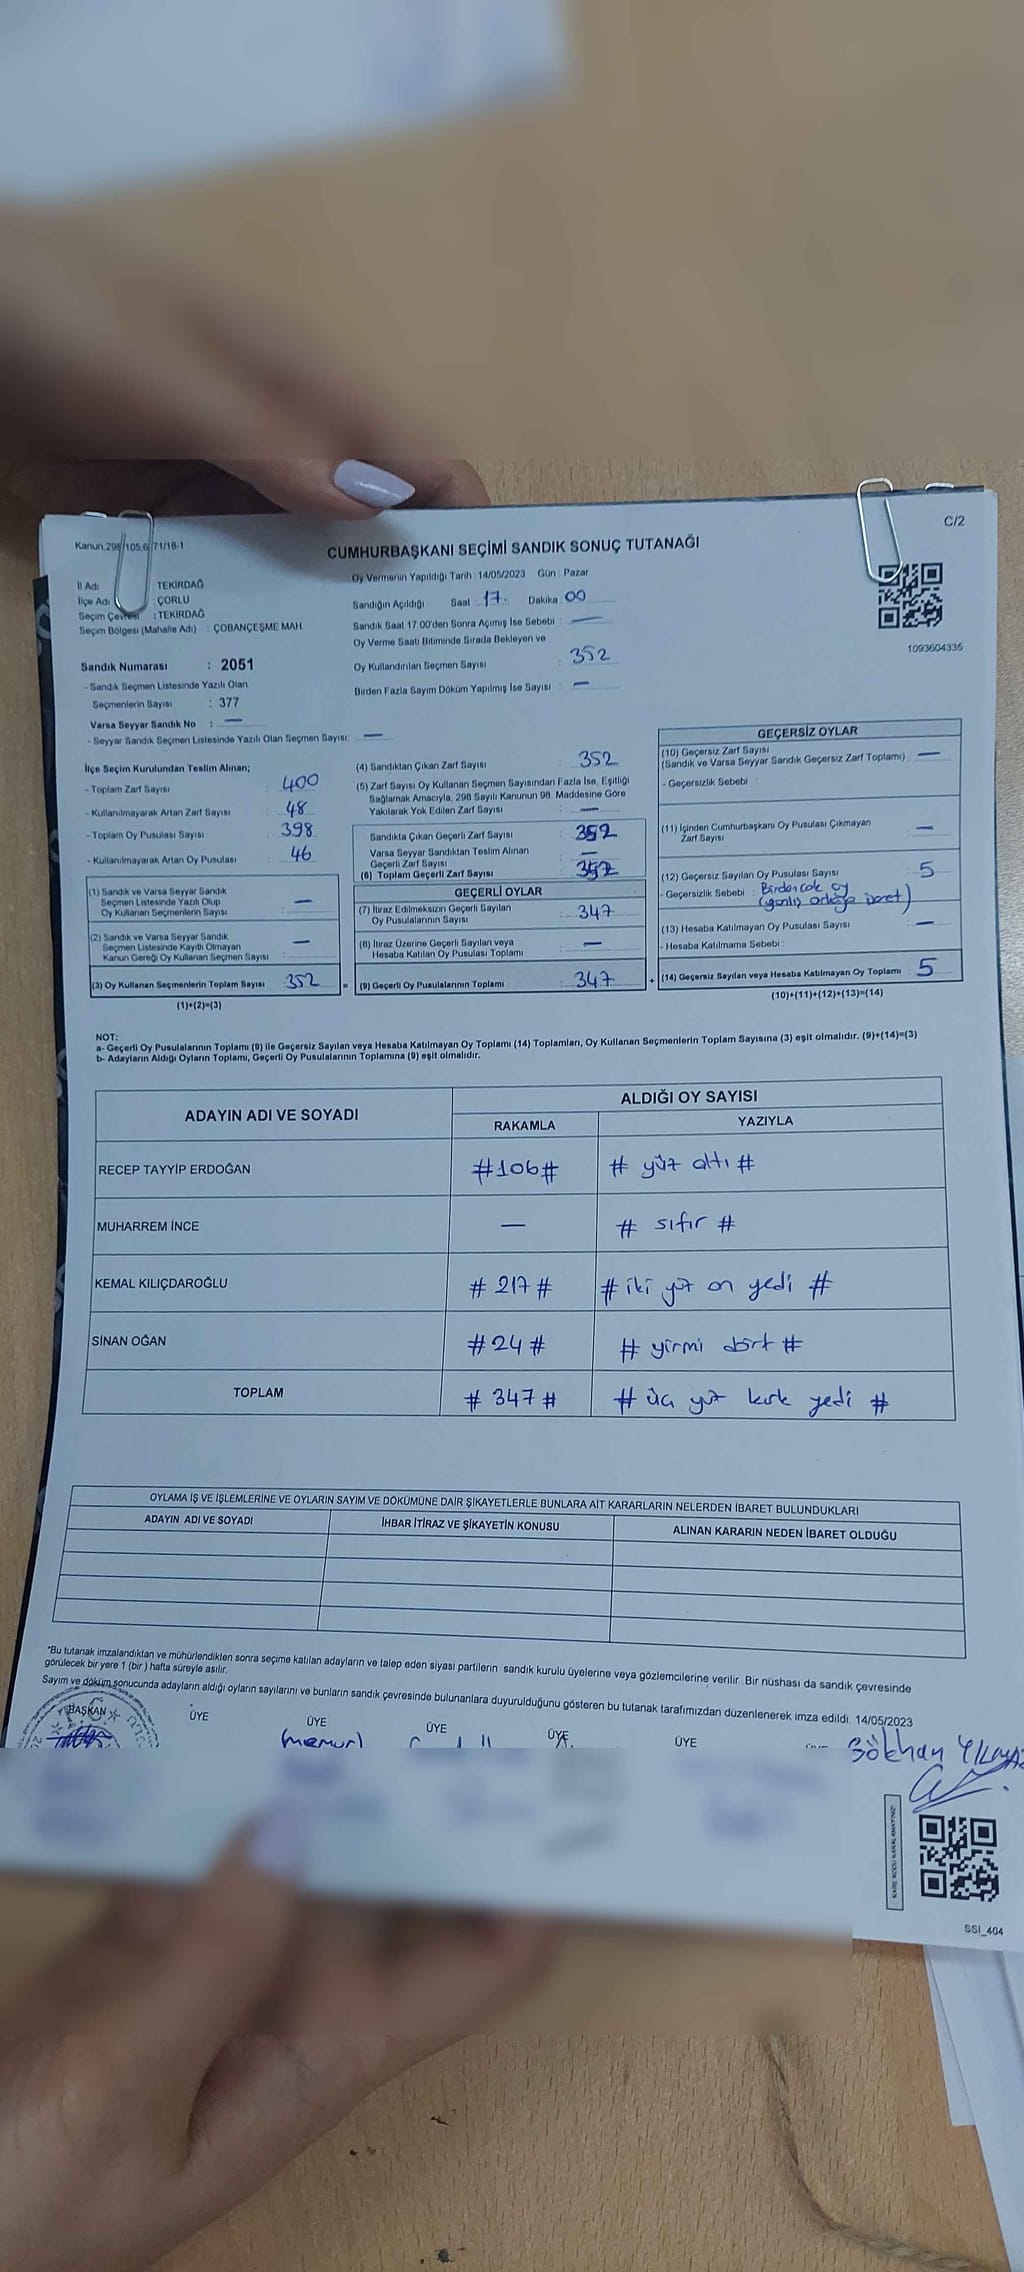 C/2
Kanun,298/105,6/71/18-1
CUMHURBAŞKANI SEÇİMİ SANDIK SONUÇ TUTANAĞI
İl Adı : TEKİRDAĞ
İlçe Adı : ÇORLU
Seçim Çevresi : TEKİRDAĞ
Seçim Bölgesi (Mahalle Adı) : ÇOBANÇEŞME MAH.
Oy Vermenin Yapıldığı Tarih :14/05/2023 Gün : Pazar
Sandığın Açıldığı Saat 17. Dakika 00
Sandık Saat 17:00'den Sonra Açımış İse Sebebi : —
Oy Verme Saati Bitiminde Sırada Bekleyen ve
Oy Kullandırılan Seçmen Sayısı : 352
Birden Fazla Sayım Döküm Yapılmış İse Sayısı : —
1093604335
Sandık Numarası : 2051
- Sandık Seçmen Listesinde Yazılı Olan
Seçmenlerin Sayısı : 377
Varsa Seyyar Sandık No : —
- Seyyar Sandık Seçmen Listesinde Yazılı Olan Seçmen Sayısı: —
İlçe Seçim Kurulundan Teslim Alınan;
- Toplam Zarf Sayısı : 400
- Kullanılmayarak Artan Zarf Sayısı : 48
- Toplam Oy Pusulası Sayısı : 398
- Kullanılmayarak Artan Oy Pusulası : 46
(1) Sandık ve Varsa Seyyar Sandık
Seçmen Listesinde Yazılı Olup
Oy Kullanan Seçmenlerin Sayısı : —
(2) Sandık ve Varsa Seyyar Sandık
Seçmen Listesinde Kayıtlı Olmayan
Kanun Gereği Oy Kullanan Seçmen Sayısı : —
(3) Oy Kullanan Seçmenlerin Toplam Sayısı : 352
(1)+(2)=(3)
(4) Sandıktan Çıkan Zarf Sayısı : 352
(5) Zarf Sayısı Oy Kullanan Seçmen Sayısından Fazla İse, Eşitliği
Sağlamak Amacıyla, 298 Sayılı Kanunun 98. Maddesine Göre
Yakılarak Yok Edilen Zarf Sayısı : —
Sandıkta Çıkan Geçerli Zarf Sayısı : 352
Varsa Seyyar Sandıktan Teslim Alınan
Geçerli Zarf Sayısı : —
(6) Toplam Geçerli Zarf Sayısı : 352
GEÇERLİ OYLAR
(7) İtiraz Edilmeksizin Geçerli Sayılan
Oy Pusulalarının Sayısı : 347
(8) İtiraz Üzerine Geçerli Sayılan veya
Hesaba Katılan Oy Pusulası Toplamı : —
= (9) Geçerli Oy Pusulalarının Toplamı : 347
GEÇERSİZ OYLAR
(10) Geçersiz Zarf Sayısı
(Sandık ve Varsa Seyyar Sandık Geçersiz Zarf Toplamı) : —
- Geçersizlik Sebebi :
(11) İçinden Cumhurbaşkanı Oy Pusulası Çıkmayan
Zarf Sayısı : —
(12) Geçersiz Sayılan Oy Pusulası Sayısı : 5
- Geçersizlik Sebebi : Birden çok oy
(13) Hesaba Katılmayan Oy Pusulası Sayısı : —
- Hesaba Katılmama Sebebi :
+ (14) Geçersiz Sayılan veya Hesaba Katılmayan Oy Toplamı : 5
(10)+(11)+(12)+(13)=(14)
NOT:
a- Geçerli Oy Pusulalarının Toplamı (9) ile Geçersiz Sayılan veya Hesaba Katılmayan Oy Toplamı (14) Toplamları, Oy Kullanan Seçmenlerin Toplam Sayısına (3) eşit olmalıdır. (9)+(14)=(3)
b- Adayların Aldığı Oyların Toplamı, Geçerli Oy Pusulalarının Toplamına (9) eşit olmalıdır.
ADAYIN ADI VE SOYADI ALDIĞI OY SAYISI
RAKAMLA YAZIYLA
RECEP TAYYİP ERDOĞAN #106# # yüz altı #
MUHARREM İNCE — # sıfır #
KEMAL KILIÇDAROĞLU # 217 # # iki yüz on yedi #
SİNAN OĞAN #24# # yirmi dört #
TOPLAM # 347 # # üç yüz kırk yedi #
OYLAMA İŞ VE İŞLEMLERİNE VE OYLARIN SAYIM VE DÖKÜMÜNE DAİR ŞİKAYETLERLE BUNLARA AİT KARARLARIN NELERDEN İBARET BULUNDUKLARI
ADAYIN ADI VE SOYADI İHBAR İTİRAZ VE ŞİKAYETİN KONUSU ALINAN KARARIN NEDEN İBARET OLDUĞU
*Bu tutanak imzalandıktan ve mühürlendikten sonra seçime katılan adayların ve talep eden siyasi partilerin sandık kurulu üyelerine veya gözlemcilerine verilir. Bir nüshası da sandık çevresinde
görülecek bir yere 1 (bir ) hafta süreyle asılır.
Sayım ve döküm sonucunda adayların aldığı oyların sayılarını ve bunların sandık çevresinde bulunanlara duyurulduğunu gösteren bu tutanak tarafımızdan düzenlenerek imza edildi. 14/05/2023
BAŞKAN ÜYE ÜYE ÜYE ÜYE ÜYE
(memur)
Gökhan YILMAZ
KARE KODU KARALAMAYINIZ!
SSI_404